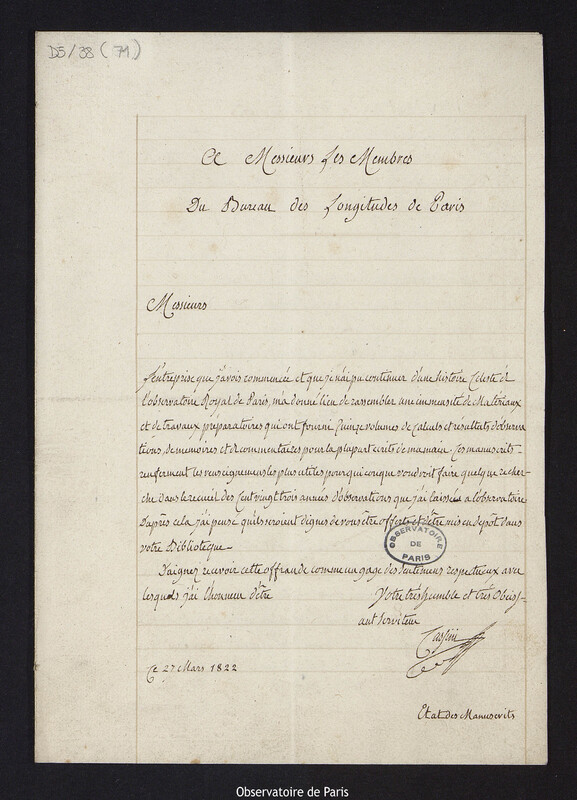 D5/38 (71)
A Messieurs Les Membres
Du Bureau des Longitudes de Paris
Messieurs
L'entreprise que j'avois commencée et que je n'ai pu continuer d'une histoire Celeste de
l'observatoire Royal de Paris, m'a donné lieu de rassembler une immensité de Matériaux
et de travaux preparatoires qui ont fourni Quinze volumes de calculs et resultats d'observa
tions, de memoires et de commentaires pour la plupart ecrits de ma main. Ces manuscrits
renferment les renseignemens les plus utiles pour quiconque voudroit faire quelque recher-
che dans le recueil des Cent vingt trois années d'observations que j'ai laissées a l'observatoire
D'après cela j'ai pensé qu'ils seroient dignes de vous être offerts et d'être mis en depôt dans
votre Bibliotèque.
Daignez recevoir cette offrande comme un gage des sentimens respectueux avec
lesquels j'ai l'honneur d'être
Votre très humble et très Obeiss-
ant serviteur
Cassini
Ce 27 Mars 1822
Etat des Manuscrits
OBSERVATOIRE
DE
PARIS
Observatoire de Paris